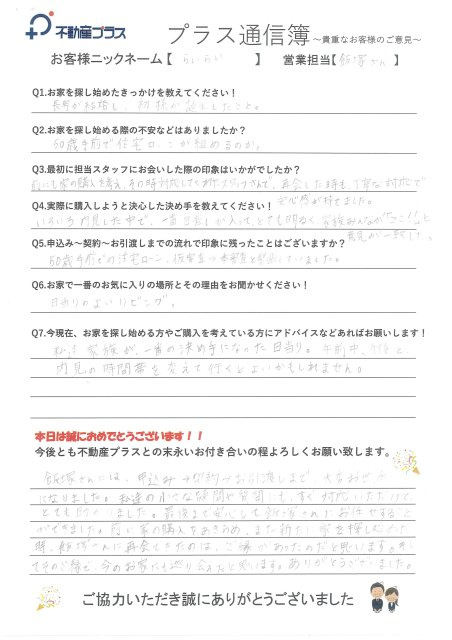 不動産プラス プラス通信簿 ～貴重なお客様のご意見～
お客様ニックネーム【 らいらい 】 営業担当【 飯塚さん 】
Q1.お家を探し始めたきっかけを教えてください！
長男が結婚し、初孫が誕生したこと。
Q2.お家を探し始める際の不安などはありましたか？
50歳手前で住宅ローンが組めるのか。
Q3.最初に担当スタッフにお会いした際の印象はいかがでしたか？
前にも家の購入を考え、その時対応してくれたスタッフさんで、再会した時も、丁寧な対応で
安心感が持てました。
Q4.実際に購入しようと決心した決め手を教えてください！
いろいろ内見した中で、一番日差しが入って、とても明るく家族みんなが「ここ！」と
意見が一致した。
Q5.申込み～契約～お引渡しまでの流れで印象に残ったことはございますか？
50歳手前での住宅ローン、仮審査
Q6.お家で一番のお気に入りの場所とその理由をお聞かせください！
日当りのよいリビング。
Q7.今現在、お家を探し始める方やご購入を考えている方にアドバイスなどあればお願いします！
私達家族が、一番の決め手になった日当り。午前中、午後と、
内見の時間帯を変えて行くとよいかもしれません。
本日は誠におめでとうございます！！
今後とも不動産プラスとの末永いお付き合いの程よろしくお願い致します。
飯塚さんには、申込み→契約→お引渡しまで、大変お世話
になりました。私達の小さな疑問や質問にも、すぐ対応いただけて、
とても助かりました。最後まで安心して飯塚さんにお任せするこ
とができました。前に家の購入をあきらめ、また新たに家を探し
際、飯塚さんに再会できたのは、ご縁があったのだと思います。
そのご縁で、今のお家にも巡り会えたと思います。ありがとうございました。
ご協力いただき誠にありがとうございました